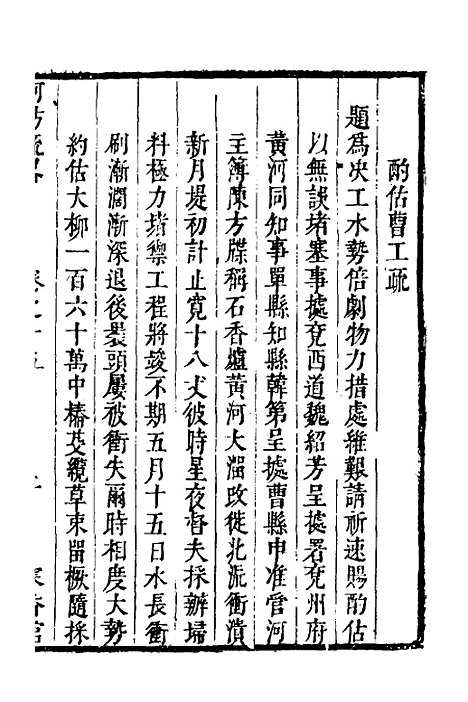 酌估曹工疏
題為决工水勢倍劇物力措處維艱請祈速賜酌估
以無誤堵塞事據兗西道魏紹芳呈據署兗州府
黃河同知事單縣知縣韓第呈據曹縣申准管河
主簿陳方牒稱石香爐黃河大溜改徙北泒衝潰
新月堤初計止寬十八丈彼時星夜督夫採辦埽
料極力堵禦工程將竣不期五月十五日水長衝
刷漸濶漸深退後裝頭屢被衝失爾時相度大勢
約估大柳一百六十萬中樁芟纜草束留橛隨採
河防疏畧 卷之十五